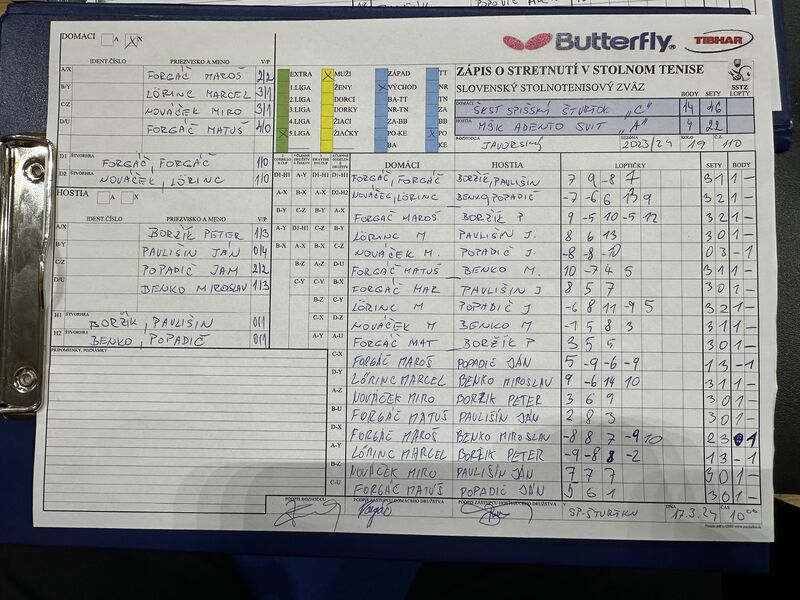 DOMÁCI A X
IDENT.ČÍSLO PRIEZVISKO A MENO V/P
A/X FORGÁČ MAROŠ 2/2
B/Y LÖRINC MARCEL 3/1
C/Z NOVÁČEK MIRO 3/1
D/U FORGÁČ MATUŠ 4/0
D1 ŠTVORHRA FORGÁČ, FORGÁČ 1/0
D2 ŠTVORHRA NOVÁČEK, LÖRINC 1/0
HOSTIA A X
IDENT.ČÍSLO PRIEZVISKO A MENO V/P
A/X BORŽÍK PETER 1/3
B/Y PAULIŠIN JÁN 0/4
C/Z POPADIČ JAM 2/2
D/U BENKO MIROSLAV 1/3
H1 ŠTVORHRA BORŽÍK, PAULIŠIN 0/1
H2 ŠTVORHRA BENKO, POPADIČ 0/1
PRIPOMIENKY, POZNÁMKY
Butterfly
TIBHAR
EXTRA MUŽI ZÁPAD TT
1.LIGA ŽENY VÝCHOD NR
2.LIGA DORCI BA-TT TN
3.LIGA DORKY NR-TN ZA
4.LIGA ŽIACI ZA-BB BB
5.LIGA ŽIAČKY PO-KE PO
BA KE
ZÁPIS O STRETNUTÍ V STOLNOM TENISE
SLOVENSKÝ STOLNOTENISOVÝ ZVÄZ
SSTZ
BODY SETY LOPTY
DOMÁCI ŠKST SPIŠSKÝ ŠTVRTOK "C" 14 46
HOSTIA MŠK ADENTO SVIT "A" 4 22
ROZHODCA JAVORSKÝ SEZÓNA 2023/24 KOLO 19 Č.
DOMÁCI HOSTIA LOPTIČKY SETY BODY
D1-H1 A-Y D1-H1 D1-H1 FORGÁČ, FORGÁČ BORŽÍK, PAULIŠIN 7 9 -8 7 3 1 1 -
A-X B-X A-X D2-H2 NOVÁČEK, LÖRINC BENKO, POPADIČ -7 -6 6 13 9 3 2 1 -
B-Y C-Z B-Y A-X FORGÁČ MAROŠ BORŽÍK P 9 -5 10 -5 12 3 2 1 -
A-Y D1-H1 C-Z B-Y LÖRINC M PAULIŠIN J. 8 6 13 3 0 1 -
B-X A-X B-X C-Z NOVÁČEK M. POPADIČ J. -8 -8 -10 0 3 - 1
B-Z A-Z D-U FORGÁČ MATUŠ BENKO M. 10 -7 4 5 3 1 1 -
C-Y C-Y B-X FORGÁČ MAR PAULIŠIN J 8 5 7 3 0 1 -
B-Z C-Y LÖRINC M POPADIČ J -6 8 11 -9 5 3 2 1 -
C-X D-Z NOVÁČEK M BENKO M -1 5 8 3 3 1 1 -
A-Y A-U FORGÁČ MAT BORŽÍK P 3 5 5 3 0 1 -
C-X FORGÁČ MAROŠ POPADIČ JÁN 5 -9 -6 -9 1 3 - 1
D-Y LÖRINC MARCEL BENKO MIROSLAV 9 -6 14 10 3 1 1 -
A-Z NOVÁČEK MIRO BORŽIK PETER 3 6 9 3 0 1 -
B-U FORGÁČ MATUŠ PAULIŠIN JÁN 2 8 3 3 0 1 -
D-X FORGÁČ MAROŠ BENKO MIROSLAV -8 8 7 -9 10 2 3 1
A-Y LÖRINC MARCEL BORŽIK PETER -9 -8 8 -2 1 3 - 1
B-Z NOVÁČEK MIRO PAULIŠIN JÁN 7 7 7 3 0 1 -
C-U FORGÁČ MATÚŠ POPADIČ JÁN 5 6 1 3 0 1 -
PODPIS ROZHODCU PODPIS ZÁSTUPCU DOMÁCEHO DRUŽSTVA PODPIS ZÁSTUPCU HOSŤUJÚCEHO DRUŽSTVA
V SP-ŠTVRTKU DŇA 17.3.24 ČAS 10⁰⁰